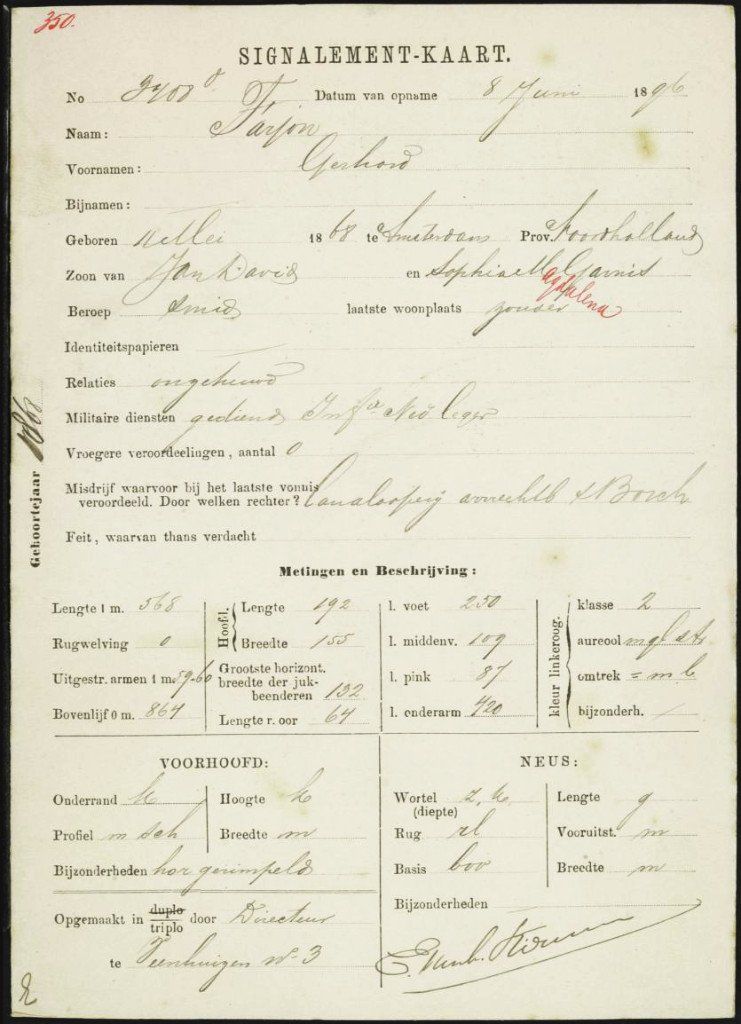 350.
SIGNALEMENT-KAART.
No 3408 d Datum van opname 8 Juni 1896
Naam: Farjon
Voornamen: Gerhard
Bijnamen: —
Geboren 11 Mei 1868 te Amsterdam Prov. Noordholland
Zoon van Jan David en Sophia M Garnis
agdalena
Beroep smid laatste woonplaats zonder
Identiteitspapieren —
Relaties ongehuwd
Militaire diensten gediend Inf Leger
Vroegere veroordeelingen, aantal 0
Misdrijf waarvoor bij het laatste vonnis
veroordeeld. Door welken rechter? Landlooperij arrrechtb sBosch
Feit, waarvan thans verdacht —
Geboortejaar 1868
Metingen en Beschrijving:
Lengte 1 m. 568 Hoofd. Lengte 192 l. voet 250 kleur linkeroog. klasse 2
Rugwelving 0 Breedte 155 l. middenv. 109 aureool
Uitgestr. armen 1 m 59-60 Grootste horizont. breedte der juk-beenderen 132 l. pink 87 omtrek = m b
Bovenlijf 0 m. 864 Lengte r. oor 64 l. onderarm 420 bijzonderh. /
VOORHOOFD: NEUS:
Onderrand k Hoogte k Wortel (diepte) z. k Lengte g
Profiel m sch Breedte m Rug rl Vooruitst. m
Bijzonderheden hor gerimpeld Basis bov Breedte m
Bijzonderheden —
Opgemaakt in duplo triplo door Directeur
te Veenhuizen No 3